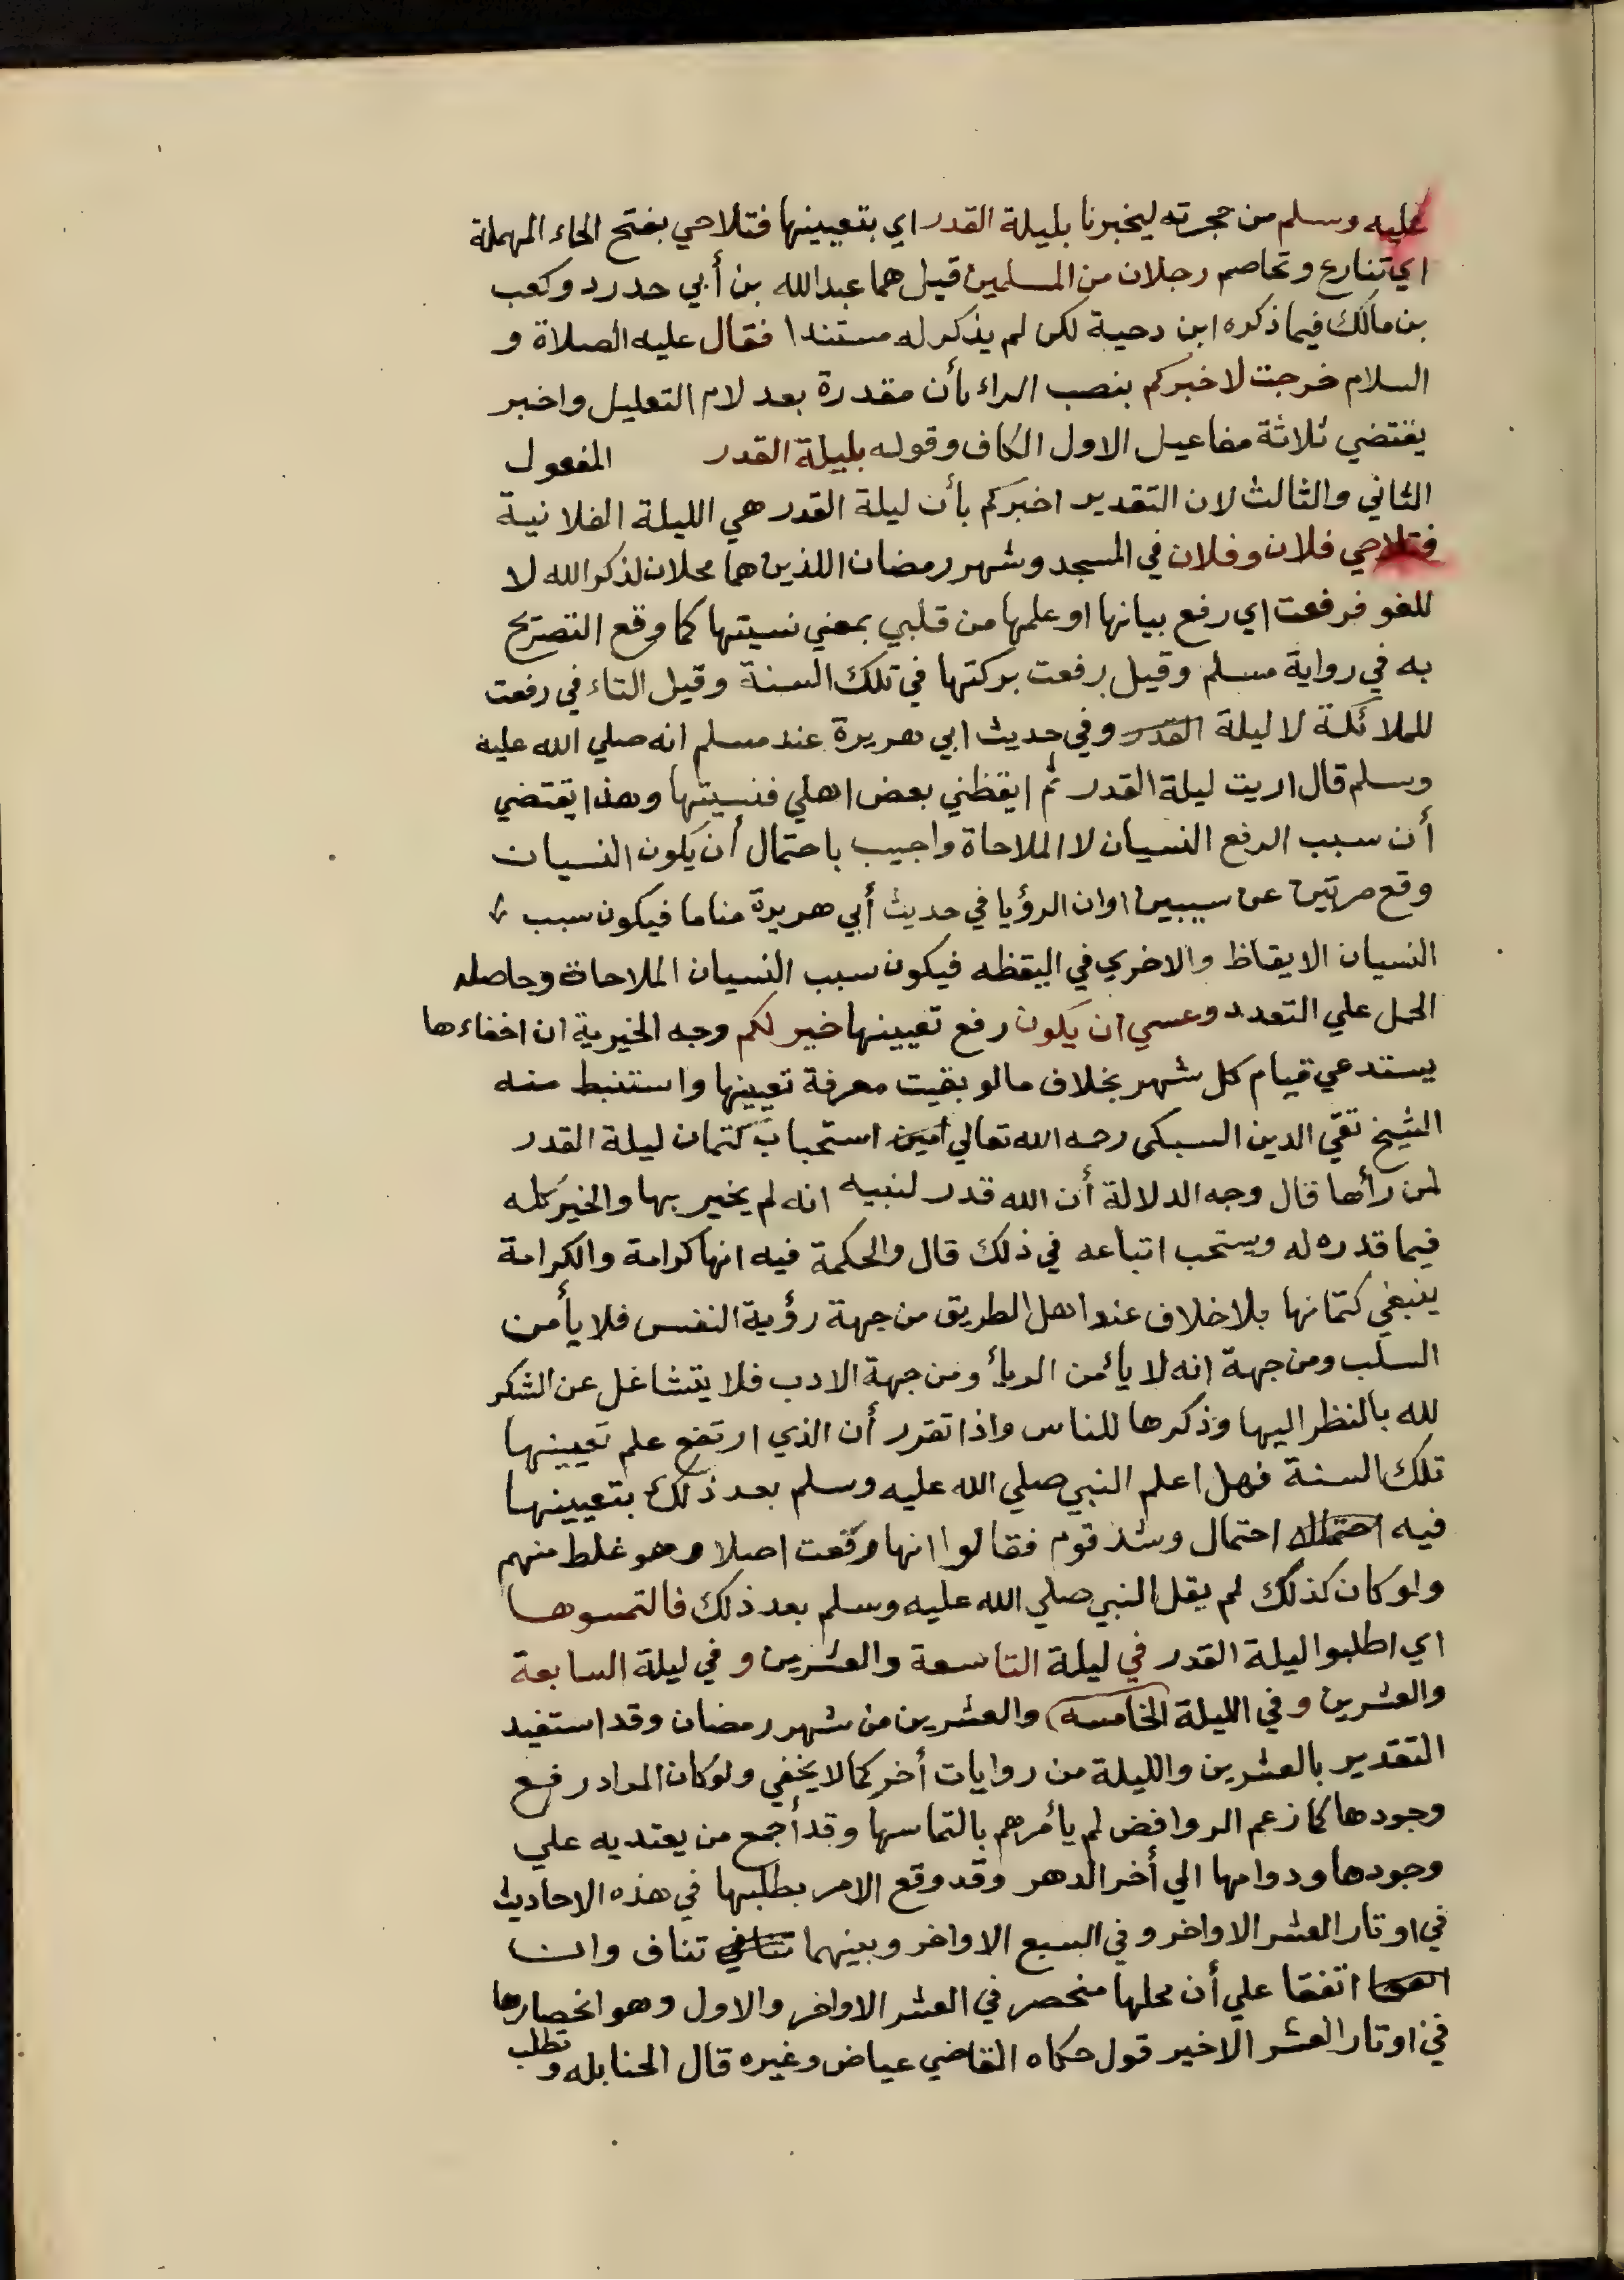 عليه وسلم من حجرته ليخبرنا بليلة القدر اي بتعيينها فتلاحي بفتح الحاء المهملة
اي تنازع وتخاصم رجلان من المسلمين قيل هما عبدالله بن أبي حدرد وكعب
بن مالك فيما ذكره ابن دحية لكن لم يذكر له مستندا فقال عليه الصلاة و
السلام خرجت لاخبركم بنصب الراء بأن مقدرة بعد لام التعليل واخبر
يقتضي ثلاثة مفاعيل الاول الكاف وقوله بليلة القدر المفعول
الثاني والثالث لان التقدير اخبركم بأن ليلة القدر هي الليلة الفلانية
فتلاحي فلان وفلان في المسجد وشهر رمضان اللذين هما محلان لذكر الله لا
للغو فرفعت اي رفع بيانها او علمها من قلبي بمعني نسيتها كما وقع التصريح
به في رواية مسلم وقيل رفعت بركتها في تلك السنة وقيل التاء في رفعت
للملائكة لا ليلة القدر وفي حديث ابي هريرة عند مسلم انه صلي الله عليه
وسلم قال اريت ليلة القدر ثم ايقظني بعض اهلي فنسيتها وهذا يقتضي
أن سبب الرفع النسيان لا الملاحاة واجيب باحتمال أن يكون النسيان
وقع مرتين عن سببين اوان الرؤيا في حديث أبي هريرة مناما فيكون سبب
النسيان الايقاظ والاخري في اليقظه فيكون سبب النسيان الملاحاة وحاصله
الحمل علي التعدد وعسي ان يكون رفع تعيينها خير لكم وجه الخيرية ان اخفاءها
يستدعي قيام كل شهر بخلاف مالو بقيت معرفة تعيينها واستنبط منه
الشيخ تقي الدين السبكى رحمه الله تعالي امين استحباب كتمان ليلة القدر
لمن رأها قال وجه الدلالة أن الله قدر لنبيه انه لم يخبر بها والخير كله
فيما قدره له ويستحب اتباعه في ذلك قال والحكمة فيه انها كرامة والكرامة
ينبغي كتمانها بلاخلاف عند اهل الطريق من جهة رؤية النفس فلا يأمن
السلب ومن جهة انه لا يأمن الريأ ومن جهة الادب فلا يتشاغل عن الشكر
لله بالنظر اليها وذكرها للناس واذا تقرر أن الذي ارتفع علم تعيينها
تلك السنة فهل اعلم النبي صلي الله عليه وسلم بعد ذلك بتعيينها
فيه احتمال احتمال وشذ قوم فقالوا انها رفعت اصلا وهو غلط منهم
ولو كان كذلك لم يقل النبي صلي الله عليه وسلم بعد ذلك فالتمسوها
اي اطلبوا ليلة القدر في ليلة التاسعة والعشرين و في ليلة السابعة
والعشرين و في الليلة الخامسه والعشرين من شهر رمضان وقد استفيد
التقدير بالعشرين والليلة من روايات أخر كما لا يخفي ولو كان المراد رفع
وجودها كما زعم الروافض لم يأمرهم بالتماسها وقد أجمع من يعتد به علي
وجودها ودوامها الي أخر الدهر وقد وقع الامر بطلبها في هذه الاحاديث
في اوتار العشر الاواخر و في السبع الاواخر وبينهما تنافي تناف وان
اتفقا علي أن محلها منحصر في العشر الاواخر والاول وهو انحصارها
في اوتار العشر الاخير قول حكاه القاضي عياض وغيره قال الحنابله و تطلب